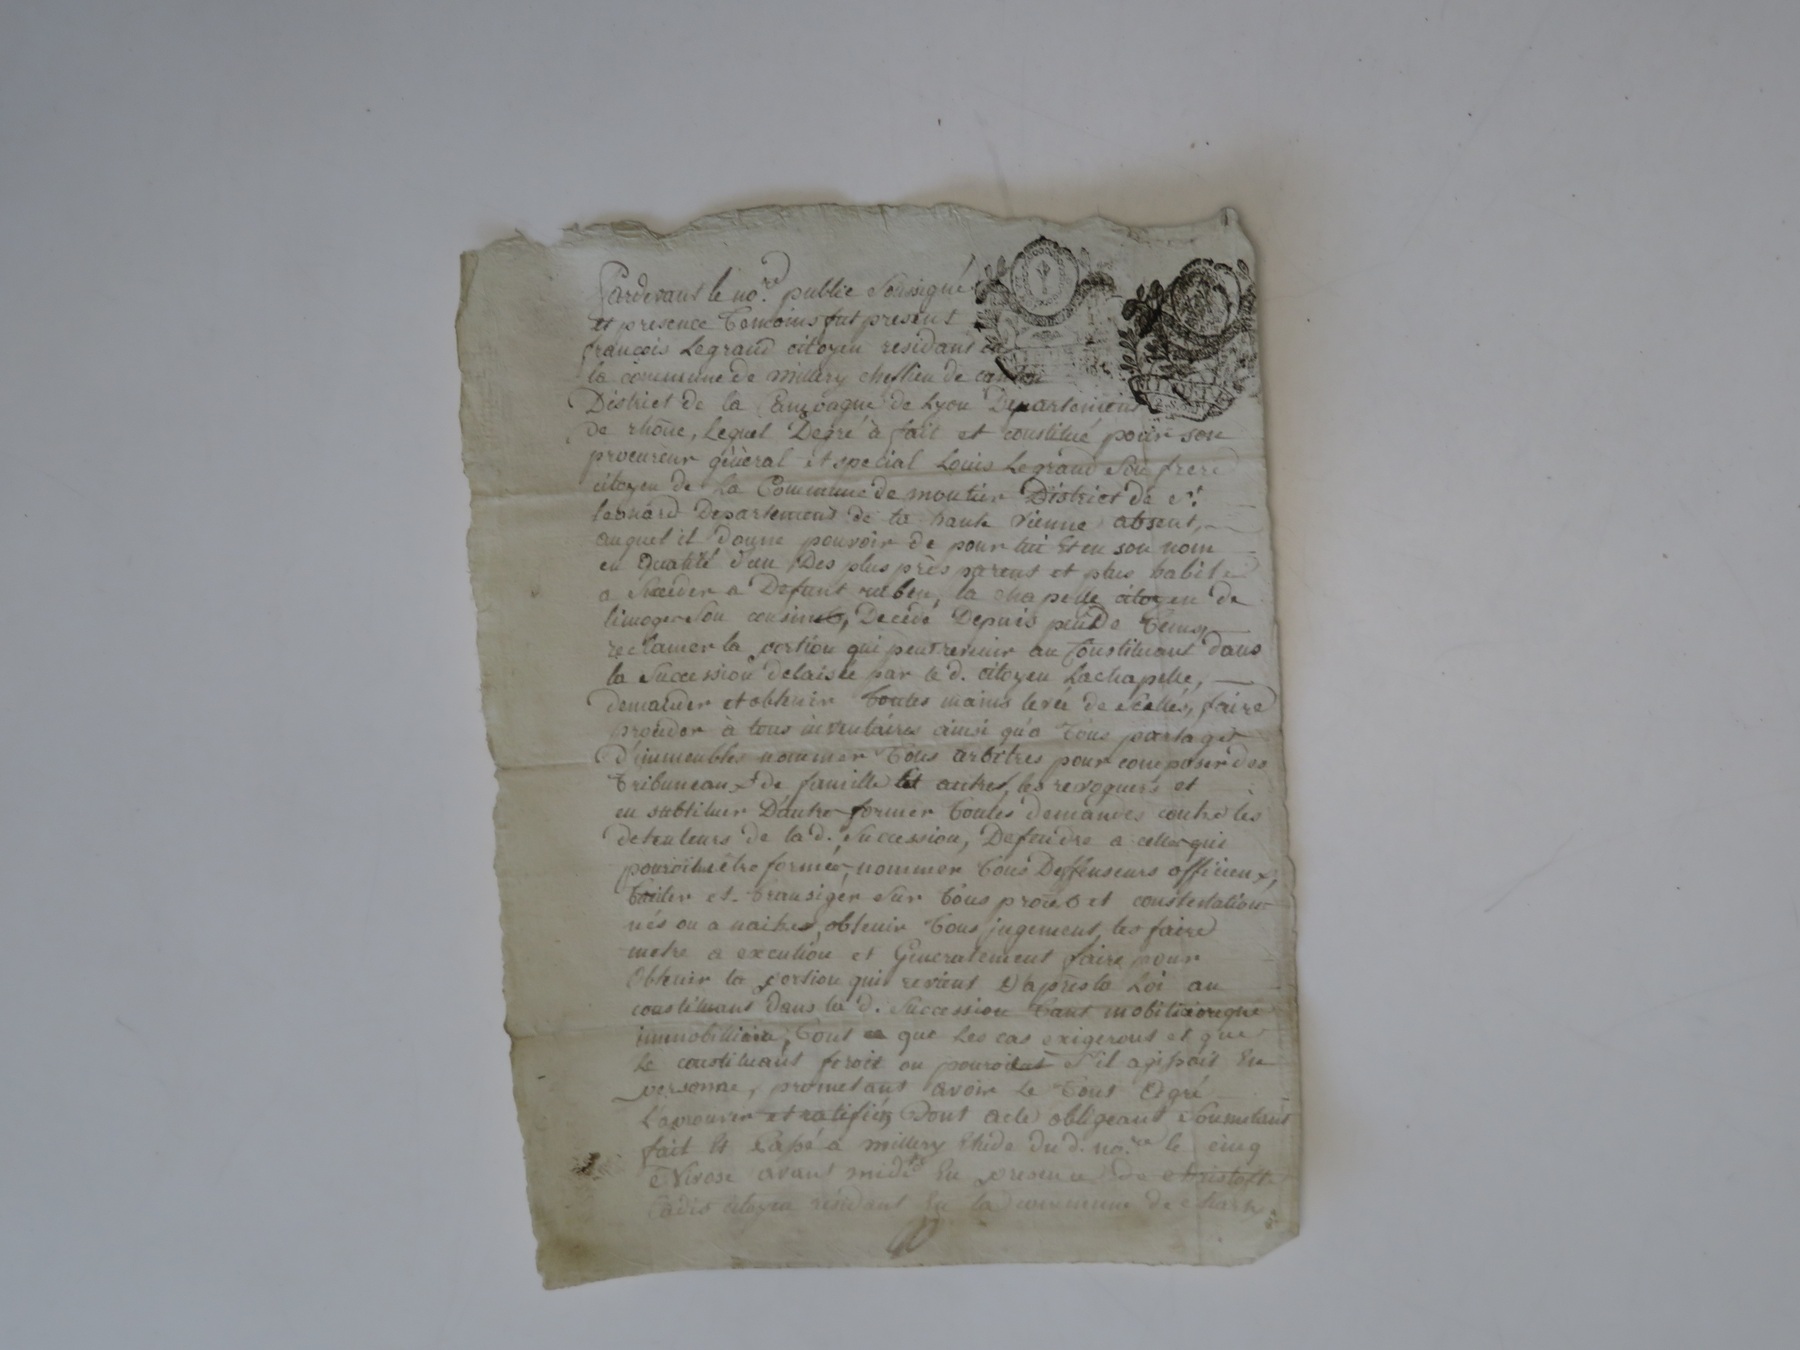 Pardevant le no.re public Soussigné
et presence Temoins fut present
françois Legrand citoyen residant en
la commune de millery cheflieu de canton
District de la Campagne de Lyon Departement
de rhône, Lequel Degré à fait et constitué pour son
procureur général et special Louis Legrand Son frere
citoyen de La Commune de moutier District de St
leonard Departement de la haute vienne absent,
auquel il donne pouvoir de pour lui Et en son nom
en Qualité d'un Des plus près parens et plus habile
a Sucéder a Defunt ruben, la chapelle citoyen de
limoge Son cousin, Decedé Depuis peu De Tems
reclamer la portion qui peut revenir au Constituant dans
la Succession delaisée par le d. citoyen Lachapelle,
demander et obtenir Toutes mains levée de Scellés, faire
proceder à tous inventaires ainsi qu'a Tous partages
D'immeubles nommer Tous arbitres pour composer des
Tribuneaux de famille et autres, les revoquers et
en subtituer D'autre former Toutes demandes contre les
detenteurs de la d. Succession, Defendre a celles qui
pouroit être formée, nommer Tous Deffenseurs officieux,
Traiter et Transiger Sur Tous procès et contestations
nés ou a naitre, obtenir Tous jugement, les faire
metre a excution et Generalement faire pour
Obtenir la portion qui revient D'après la Loi au
constituant dans la d. Succession Tant mobiliaire que
immobilliaire, Tout ce que Les cas exigerons et que
Le constituant feroit ou pouroit S'il agissoit En
personne, prometant avoir le Tout Agré
L'aprouver et ratifier Dont acte obligeant Soumetant
fait Et Passé à millery Etude du d. no.re le cinq
Nivose avant midi En presence de Christofle
citoyen résidant En la commune de